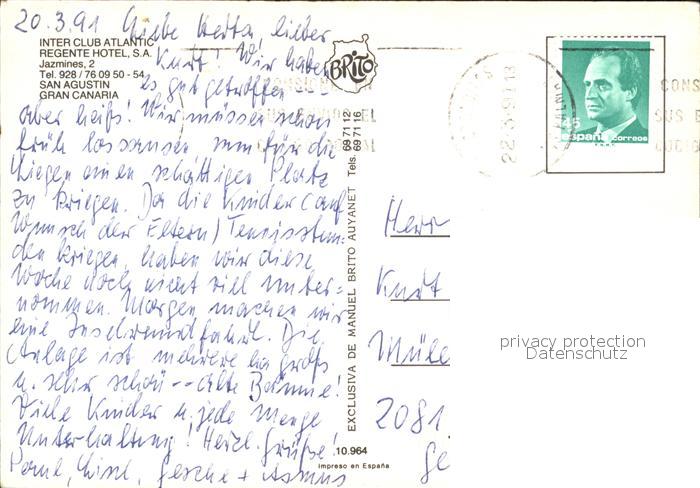 20.3.91 Liebe Herta, lieber
Kurt! Wir haben
es gut getroffen
aber heiß! Wir müssen schon
früh lossausen um für die
Liegen einen schattigen Platz
zu kriegen. Da die Kinder (auf
Wunsch der Eltern) Tennisstun-
den kriegen, haben wir diese
Woche noch nicht viel unter-
nommen. Morgen machen wir
eine Inselrundfahrt. Die
Anlage ist mehrere ha groß
u. sehr schön -- alte Bäume!
Viele Kinder u. jede Menge
Unterhaltung! Herzl. Grüße!
Gesche + Asmus
INTER CLUB ATLANTIC
REGENTE HOTEL, S.A.
Jazmines, 2
Tel. 928 / 76 09 50 - 54
SAN AGUSTIN
GRAN CANARIA
BRITO
EXCLUSIVA DE MANUEL BRITO AUYANET Tels. 69 71 12
69 71 16
10.964
Impreso en España
45
españa correos
CONS
SUS
Herr
Kurt
Mülle
2081
Ge
privacy protection
Datenschutz